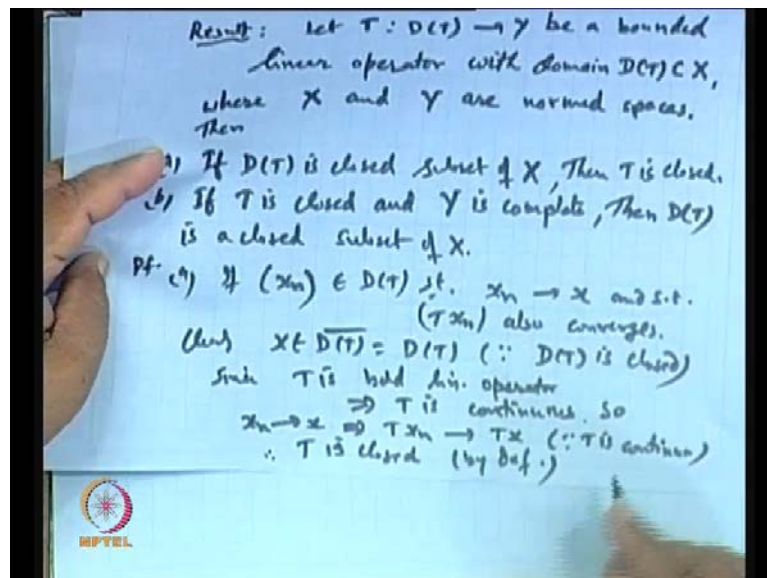 Result: Let T : D(T) → Y be a bounded
linear operator with domain D(T) ⊂ X,
where X and Y are normed spaces.
Then
(a) If D(T) is closed subset of X, Then T is closed.
(b) If T is closed and Y is complete, Then D(T)
is a closed subset of X.
Pf. (a) If (xn) ∈ D(T) st. xn → x and s.t.
(Txn) also converges.
x ∈ \overline{D(T)} = D(T) (∵ D(T) is closed)
T is bdd lin. operator
⇒ T is continuous. So
xn → x ⇒ Txn → Tx (∵ T is continuous)
∴ T is closed (by Def.)
NPTEL